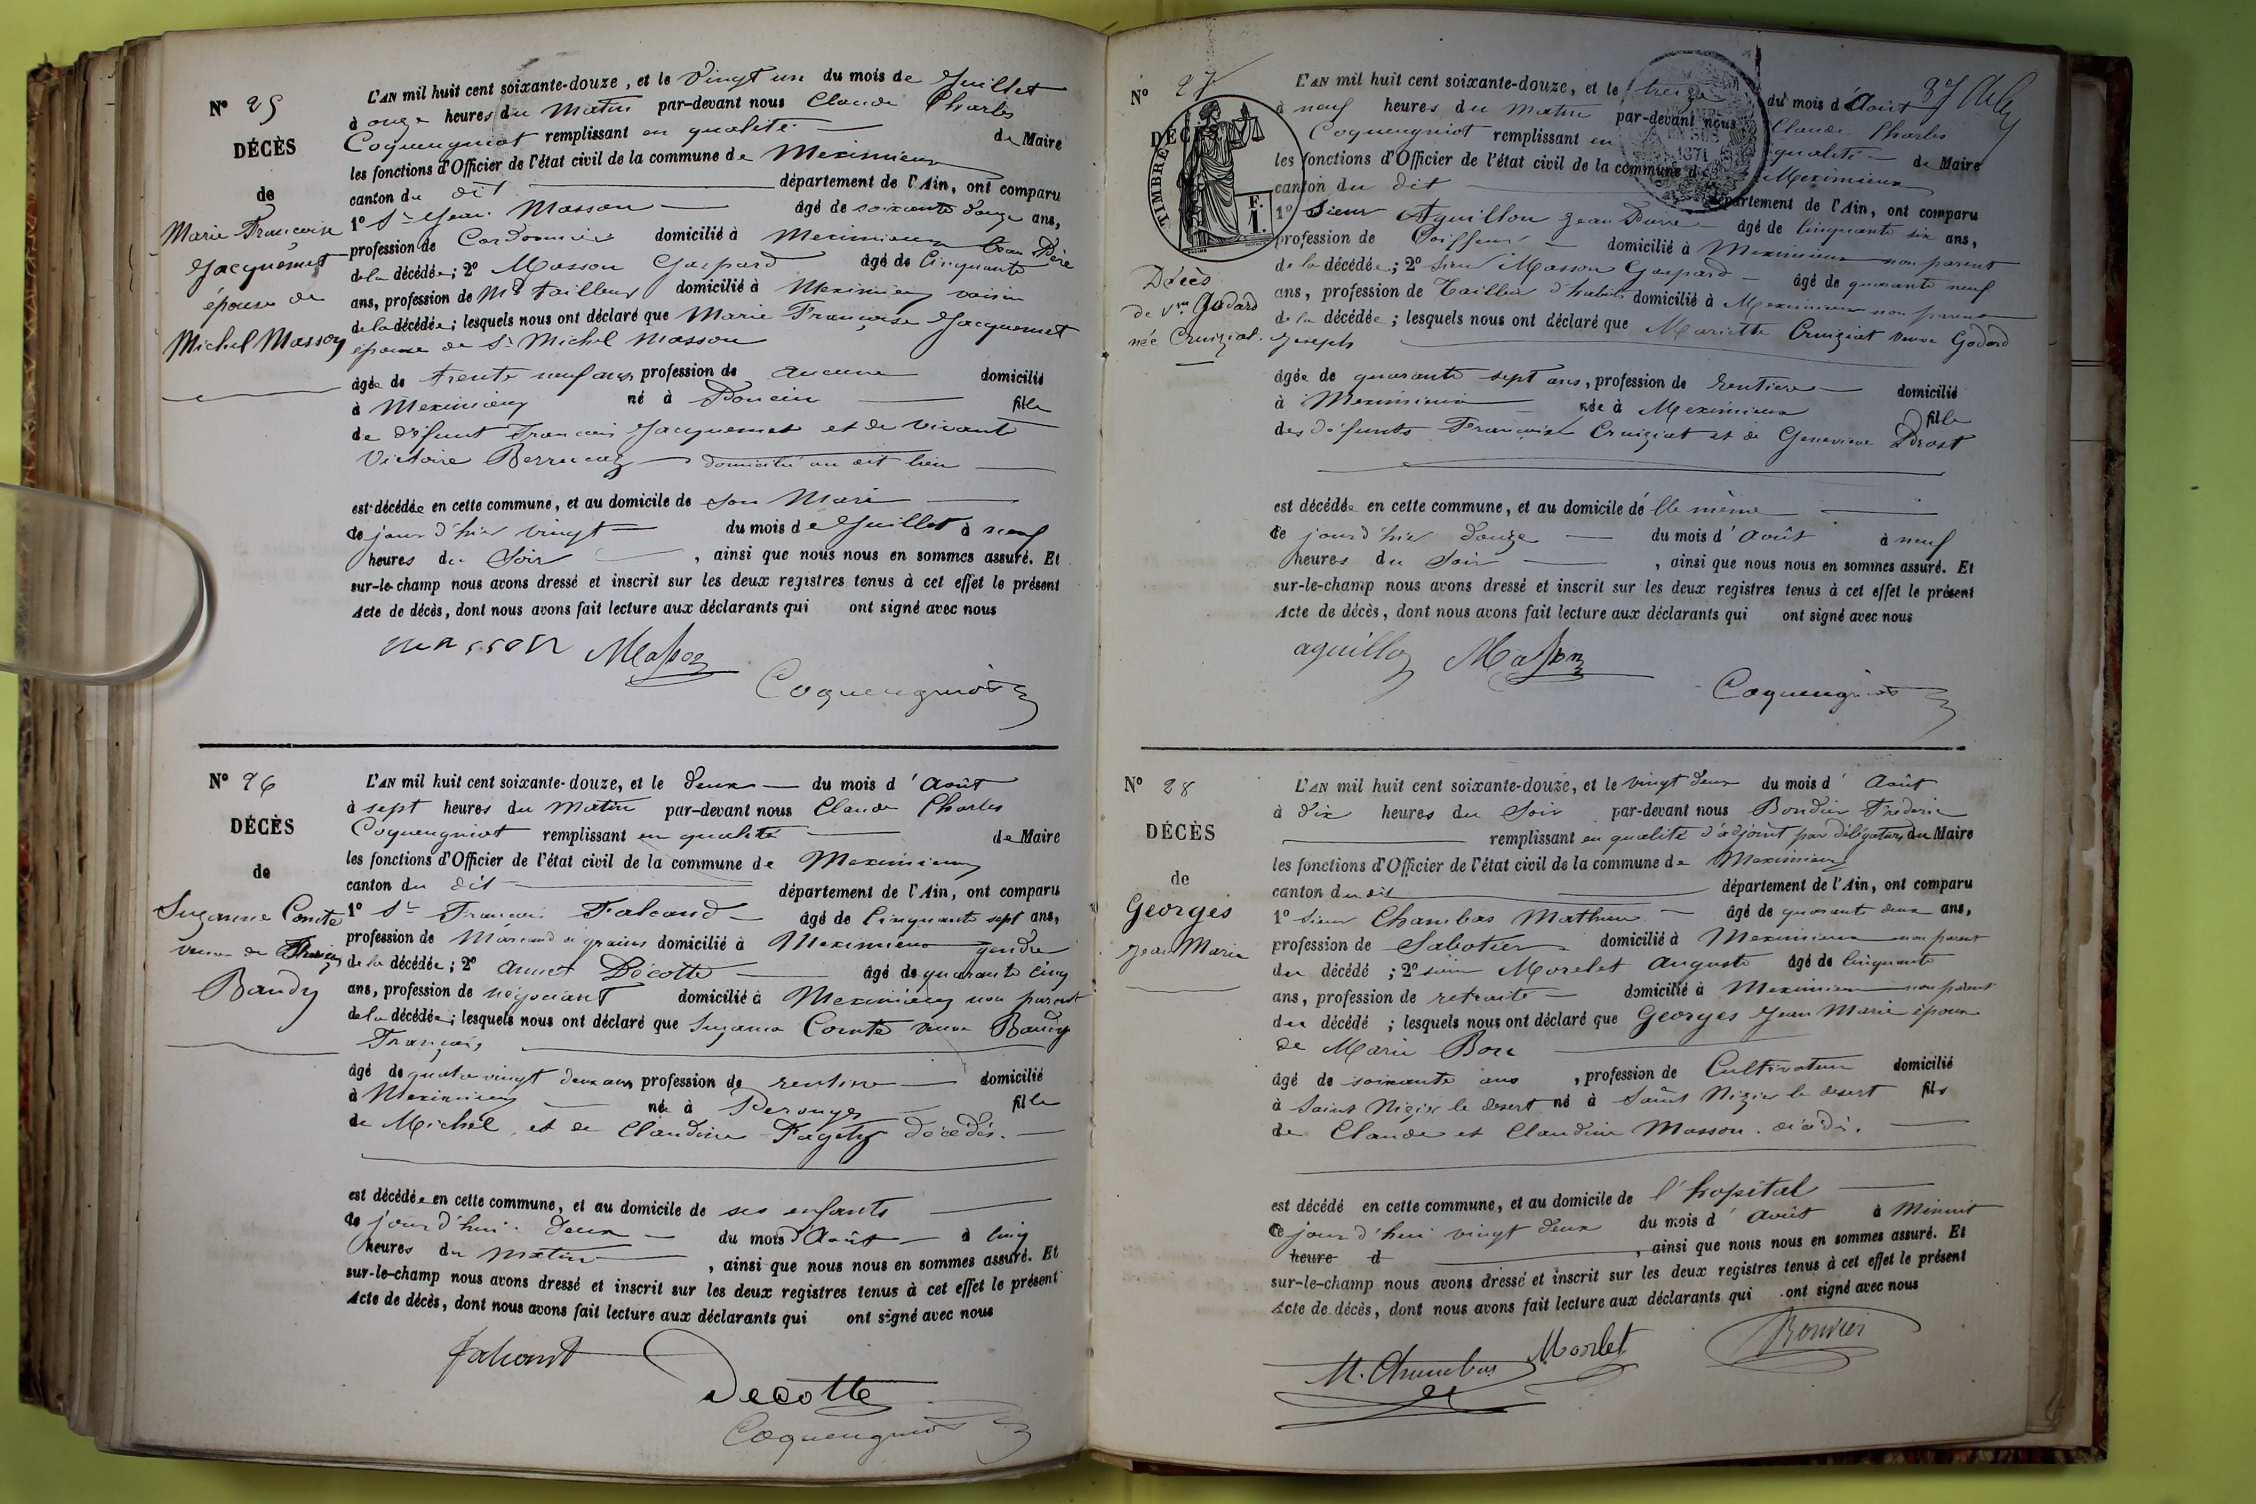 N° 25
DÉCÈS
de
Marie Francoise
Jacquemet
épouse de
Michel Masson
L'AN mil huit cent soixante-douze, et le vingt un du mois de Juillet
à onze heures du Matin par-devant nous Claude Charles
Coquengniot remplissant en qualité de Maire
les fonctions d'Officier de l'état civil de la commune de Meximieux
canton du dit département de l'Ain, ont comparu
1° Sr Jean Masson âgé de soixante douze ans,
profession de Cordonnier domicilié à Meximieux beau Père
de la décédée; 2° Masson Gaspard âgé de Cinquante
ans, profession de Md tailleur domicilié à Meximieux voisin
de la décédée; lesquels nous ont déclaré que Marie Françoise Jacquemet
épouse de Sr Michel Masson
âgée de trente neuf ans profession de aucune domicilié
à Meximieux né à Poncin fille
de défunt Francois Jacquemet et de vivante
Victoire domicilié au dit lieu
est décédée en cette commune, et au domicile de son Mari
le jour d'hier vingt du mois de Juillet à neuf
heures du Soir, ainsi que nous nous en sommes assuré. Et
sur-le-champ nous avons dressé et inscrit sur les deux registres tenus à cet effet le présent
Acte de décès, dont nous avons fait lecture aux déclarants qui ont signé avec nous
masson Masson
Coquengniot
N° 26
DÉCÈS
de
Suzanne Comte
veuve de François
Baudy
L'AN mil huit cent soixante-douze, et le deux du mois d'Août
à sept heures du Matin par-devant nous Claude Charles
Coquengniot remplissant en qualité de Maire
les fonctions d'Officier de l'état civil de la commune de Meximieux
canton du dit département de l'Ain, ont comparu
1° Sr Francois Falcand âgé de Cinquante sept ans,
profession de Marcand de grains domicilié à Meximieux gendre
de la décédée; 2° Annet Décotte âgé de quarante cinq
ans, profession de négociant domicilié à Meximieux non parent
de la décédée; lesquels nous ont déclaré que Suzanne Comte veuve Baudy
François
âgé de quatre vingt deux ans profession de rentière domicilié
à Meximieux née à Perouges fille
de Michel et de Claudine décédés.
est décédée en cette commune, et au domicile de ses enfants
le jour d'hui deux du mois d'Août à cinq
heures du matin, ainsi que nous nous en sommes assuré. Et
sur-le-champ nous avons dressé et inscrit sur les deux registres tenus à cet effet le présent
Acte de décès, dont nous avons fait lecture aux déclarants qui ont signé avec nous
Falcand
Decotte
Coquengniot
N° 27
DÉCÈS
TIMBRE
F.
1.
1871
37
Décès
de Vve Godard
née Cruiziat.
L'AN mil huit cent soixante-douze, et le treize du mois d'Août
à neuf heures du matin par-devant nous Claude Charles
Coquengniot remplissant en qualité de Maire
les fonctions d'Officier de l'état civil de la commune de Meximieux
canton du dit département de l'Ain, ont comparu
1° Sieur Aguillon Jean Pierre âgé de Cinquante six ans,
profession de Coiffeur domicilié à Meximieux non parent
de la décédée; 2° Sieur Masson Gaspard âgé de quarante neuf
ans, profession de Tailleur d'habits domicilié à Meximieux non parent
de la décédée; lesquels nous ont déclaré que Mariette Cruiziat veuve Godard
Joseph
âgée de quarante sept ans, profession de Rentière domicilié
à Meximieux née à Meximieux fille
des défunts François Cruiziat et de Genevieve Drost
est décédée en cette commune, et au domicile d'elle même
le jour d'hier douze du mois d'Août à neuf
heures du Soir, ainsi que nous nous en sommes assuré. Et
sur-le-champ nous avons dressé et inscrit sur les deux registres tenus à cet effet le présent
Acte de décès, dont nous avons fait lecture aux déclarants qui ont signé avec nous
aguillon Masson
Coquengniot
N° 28
DÉCÈS
de
Georges
Jean Marie
L'AN mil huit cent soixante-douze, et le vingt deux du mois d'Août
à dix heures du Soir par-devant nous Bouvier Frédéric
remplissant en qualité d'adjoint par délégation du Maire
les fonctions d'Officier de l'état civil de la commune de Meximieux
canton du dit département de l'Ain, ont comparu
1° Sieur Chambas Mathieu âgé de quarante deux ans,
profession de Sabotier domicilié à Meximieux non parent
du décédé; 2° sieur Morelet Auguste âgé de Cinquante
ans, profession de retraité domicilié à Meximieux non parent
du décédé; lesquels nous ont déclaré que Georges Jean Marie époux
de Marie
âgé de soixante ans, profession de Cultivateur domicilié
à Saint Nizier le desert né à Saint Nizier le desert fils
de Claude et Claudine Masson. décédés.
est décédé en cette commune, et au domicile de l'hopital
le jour d'hui vingt deux du mois d'Août à Minuit
heure d, ainsi que nous nous en sommes assuré. Et
sur-le-champ nous avons dressé et inscrit sur les deux registres tenus à cet effet le présent
Acte de décès, dont nous avons fait lecture aux déclarants qui ont signé avec nous
M. Chambas Morlet Bouvier